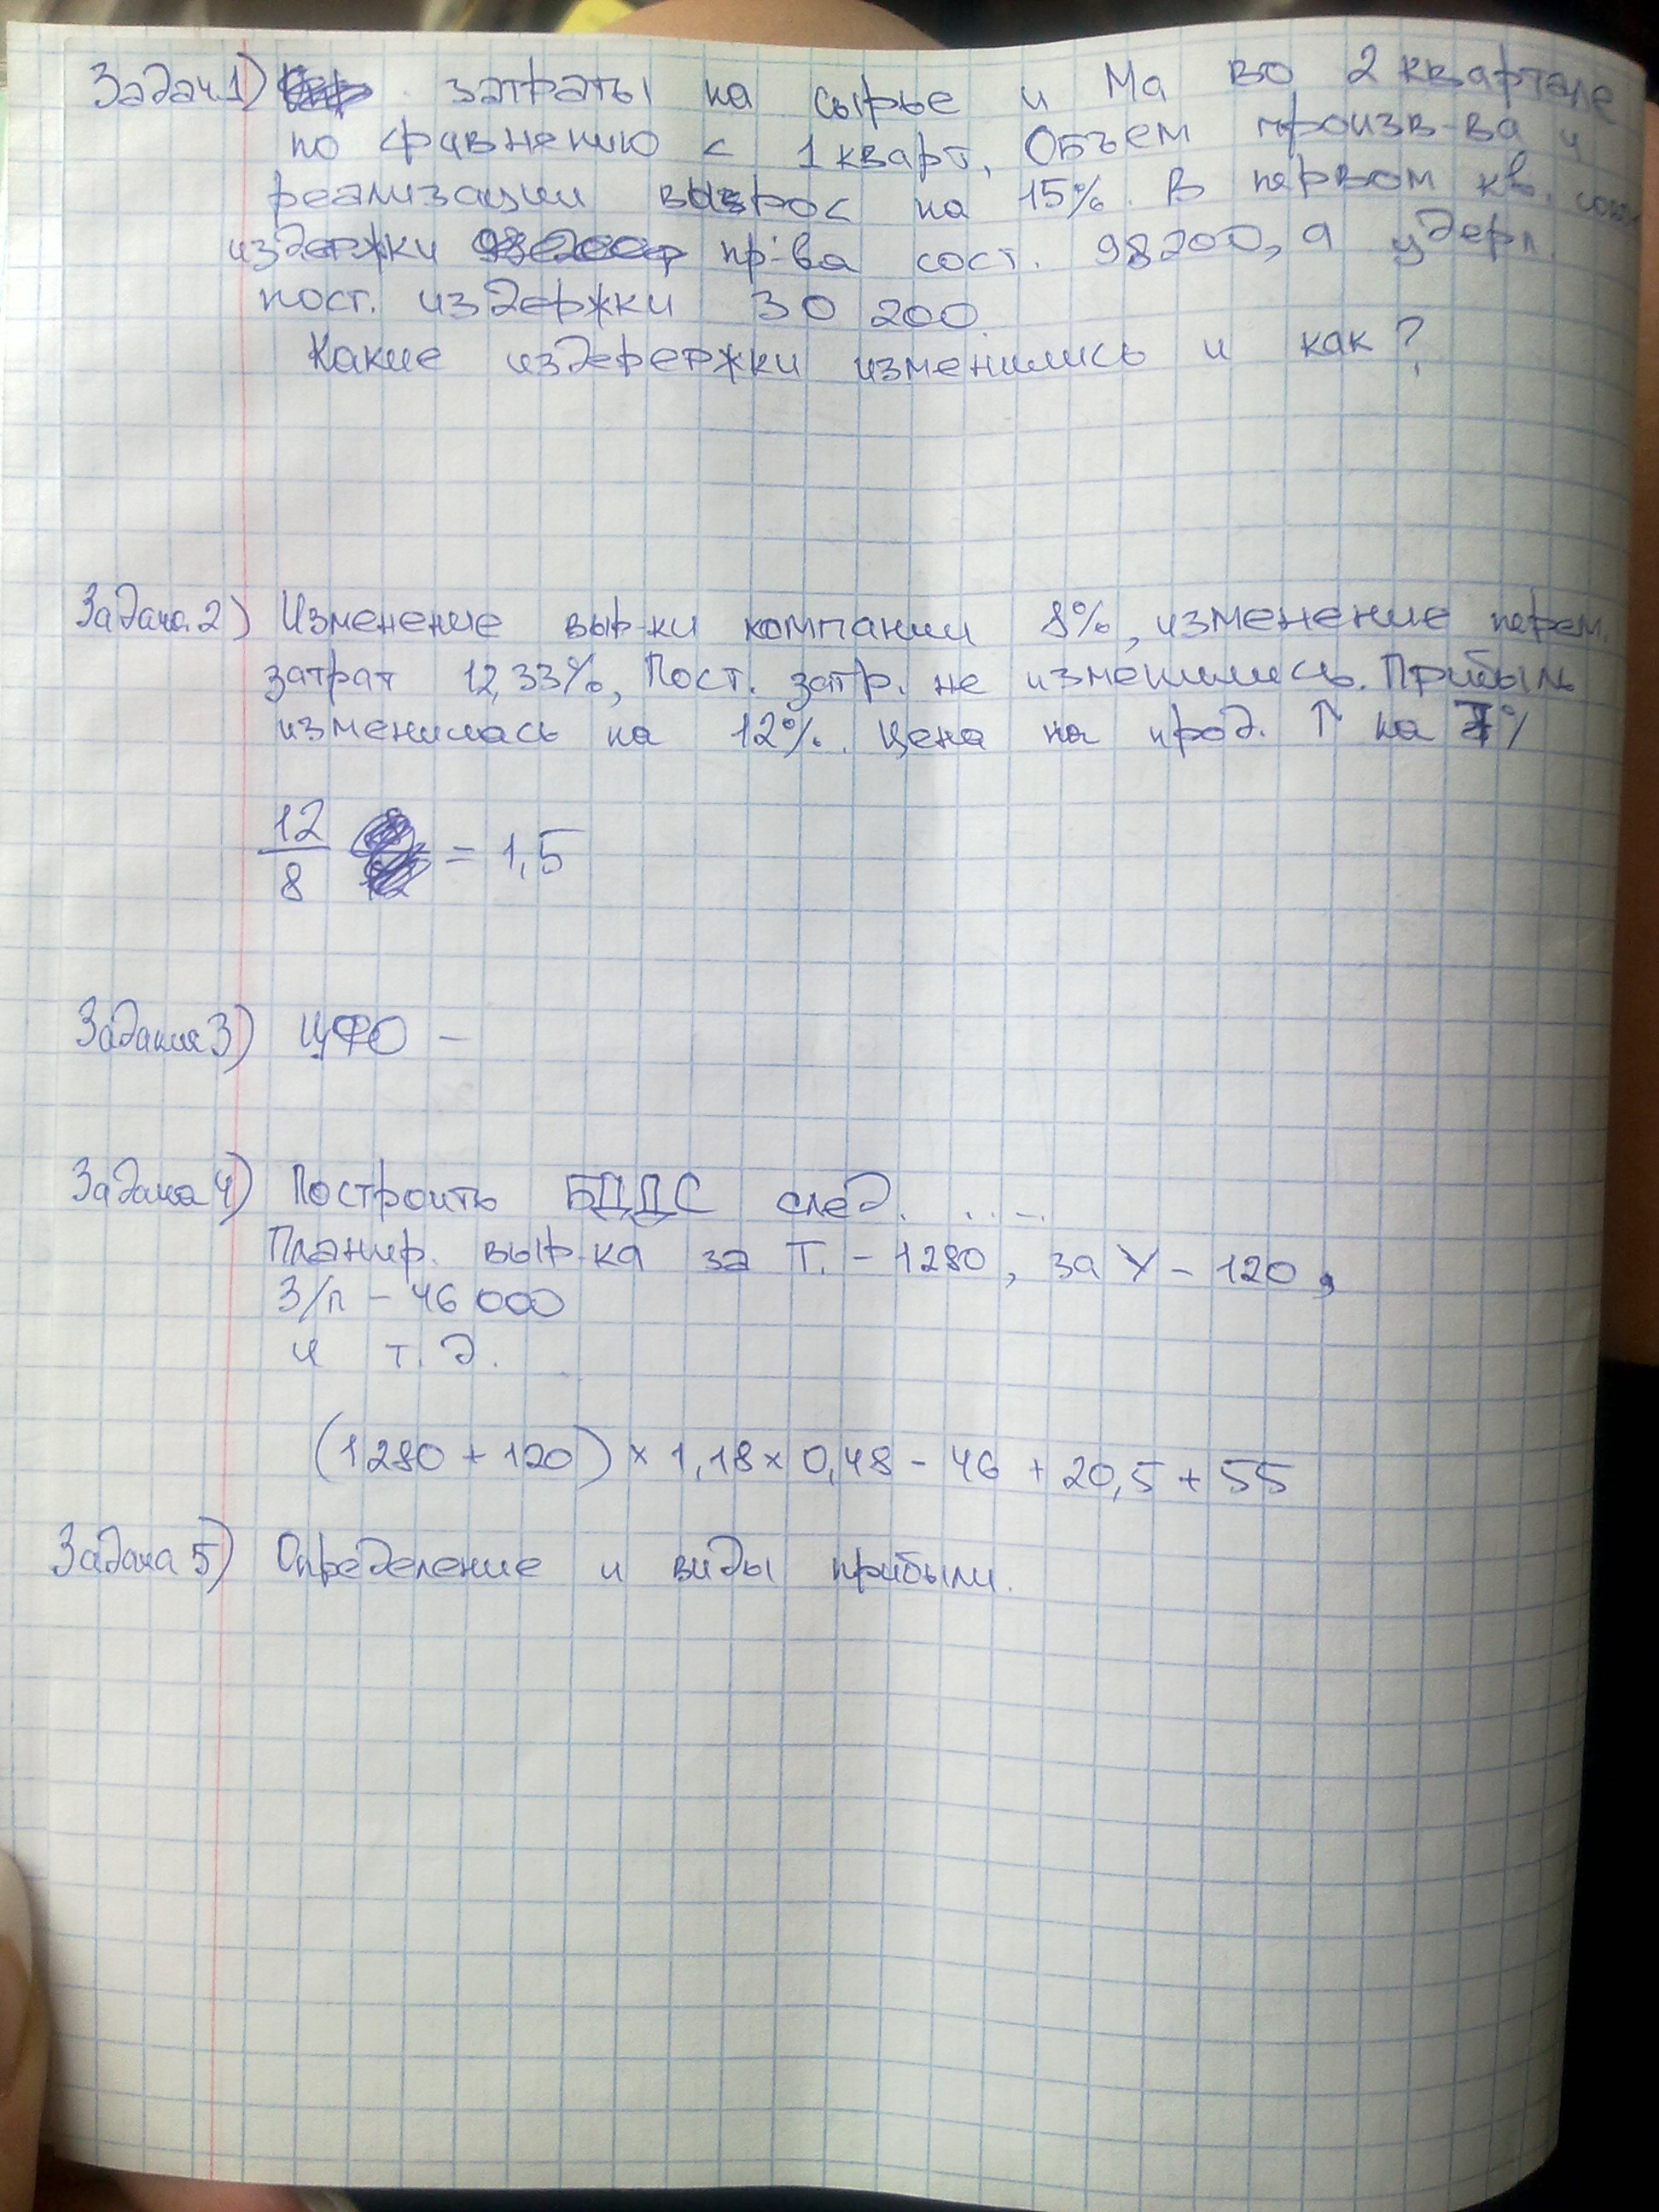 Задач.1) затраты на сырье и Ма во 2 квартале
по сравнению с 1 кварт. Объем произв-ва и
реализации вырос на 15%. В первом кв.
издержки пр-ва сост. 98200, а удерп.
пост. издержки 30 200.
Какие издерержки изменились и как?
Задача.2) Изменение выр-ки компании 8%, изменение перем.
затрат 12,33%, Пост. затр. не изменились. Прибыль
изменилась на 12%. Цена на прод. ↑ на 7%
12/8 = 1,5
Задания 3) ЦФО –
Задача 4) Построить БДДС след. .....
Планир. выр-ка за Т. – 1280, за У – 120,
З/п – 46 000
и т.д.
(1280 + 120) × 1,18 × 0,48 – 46 + 20,5 + 55
Задача 5) Определение и виды прибыли.